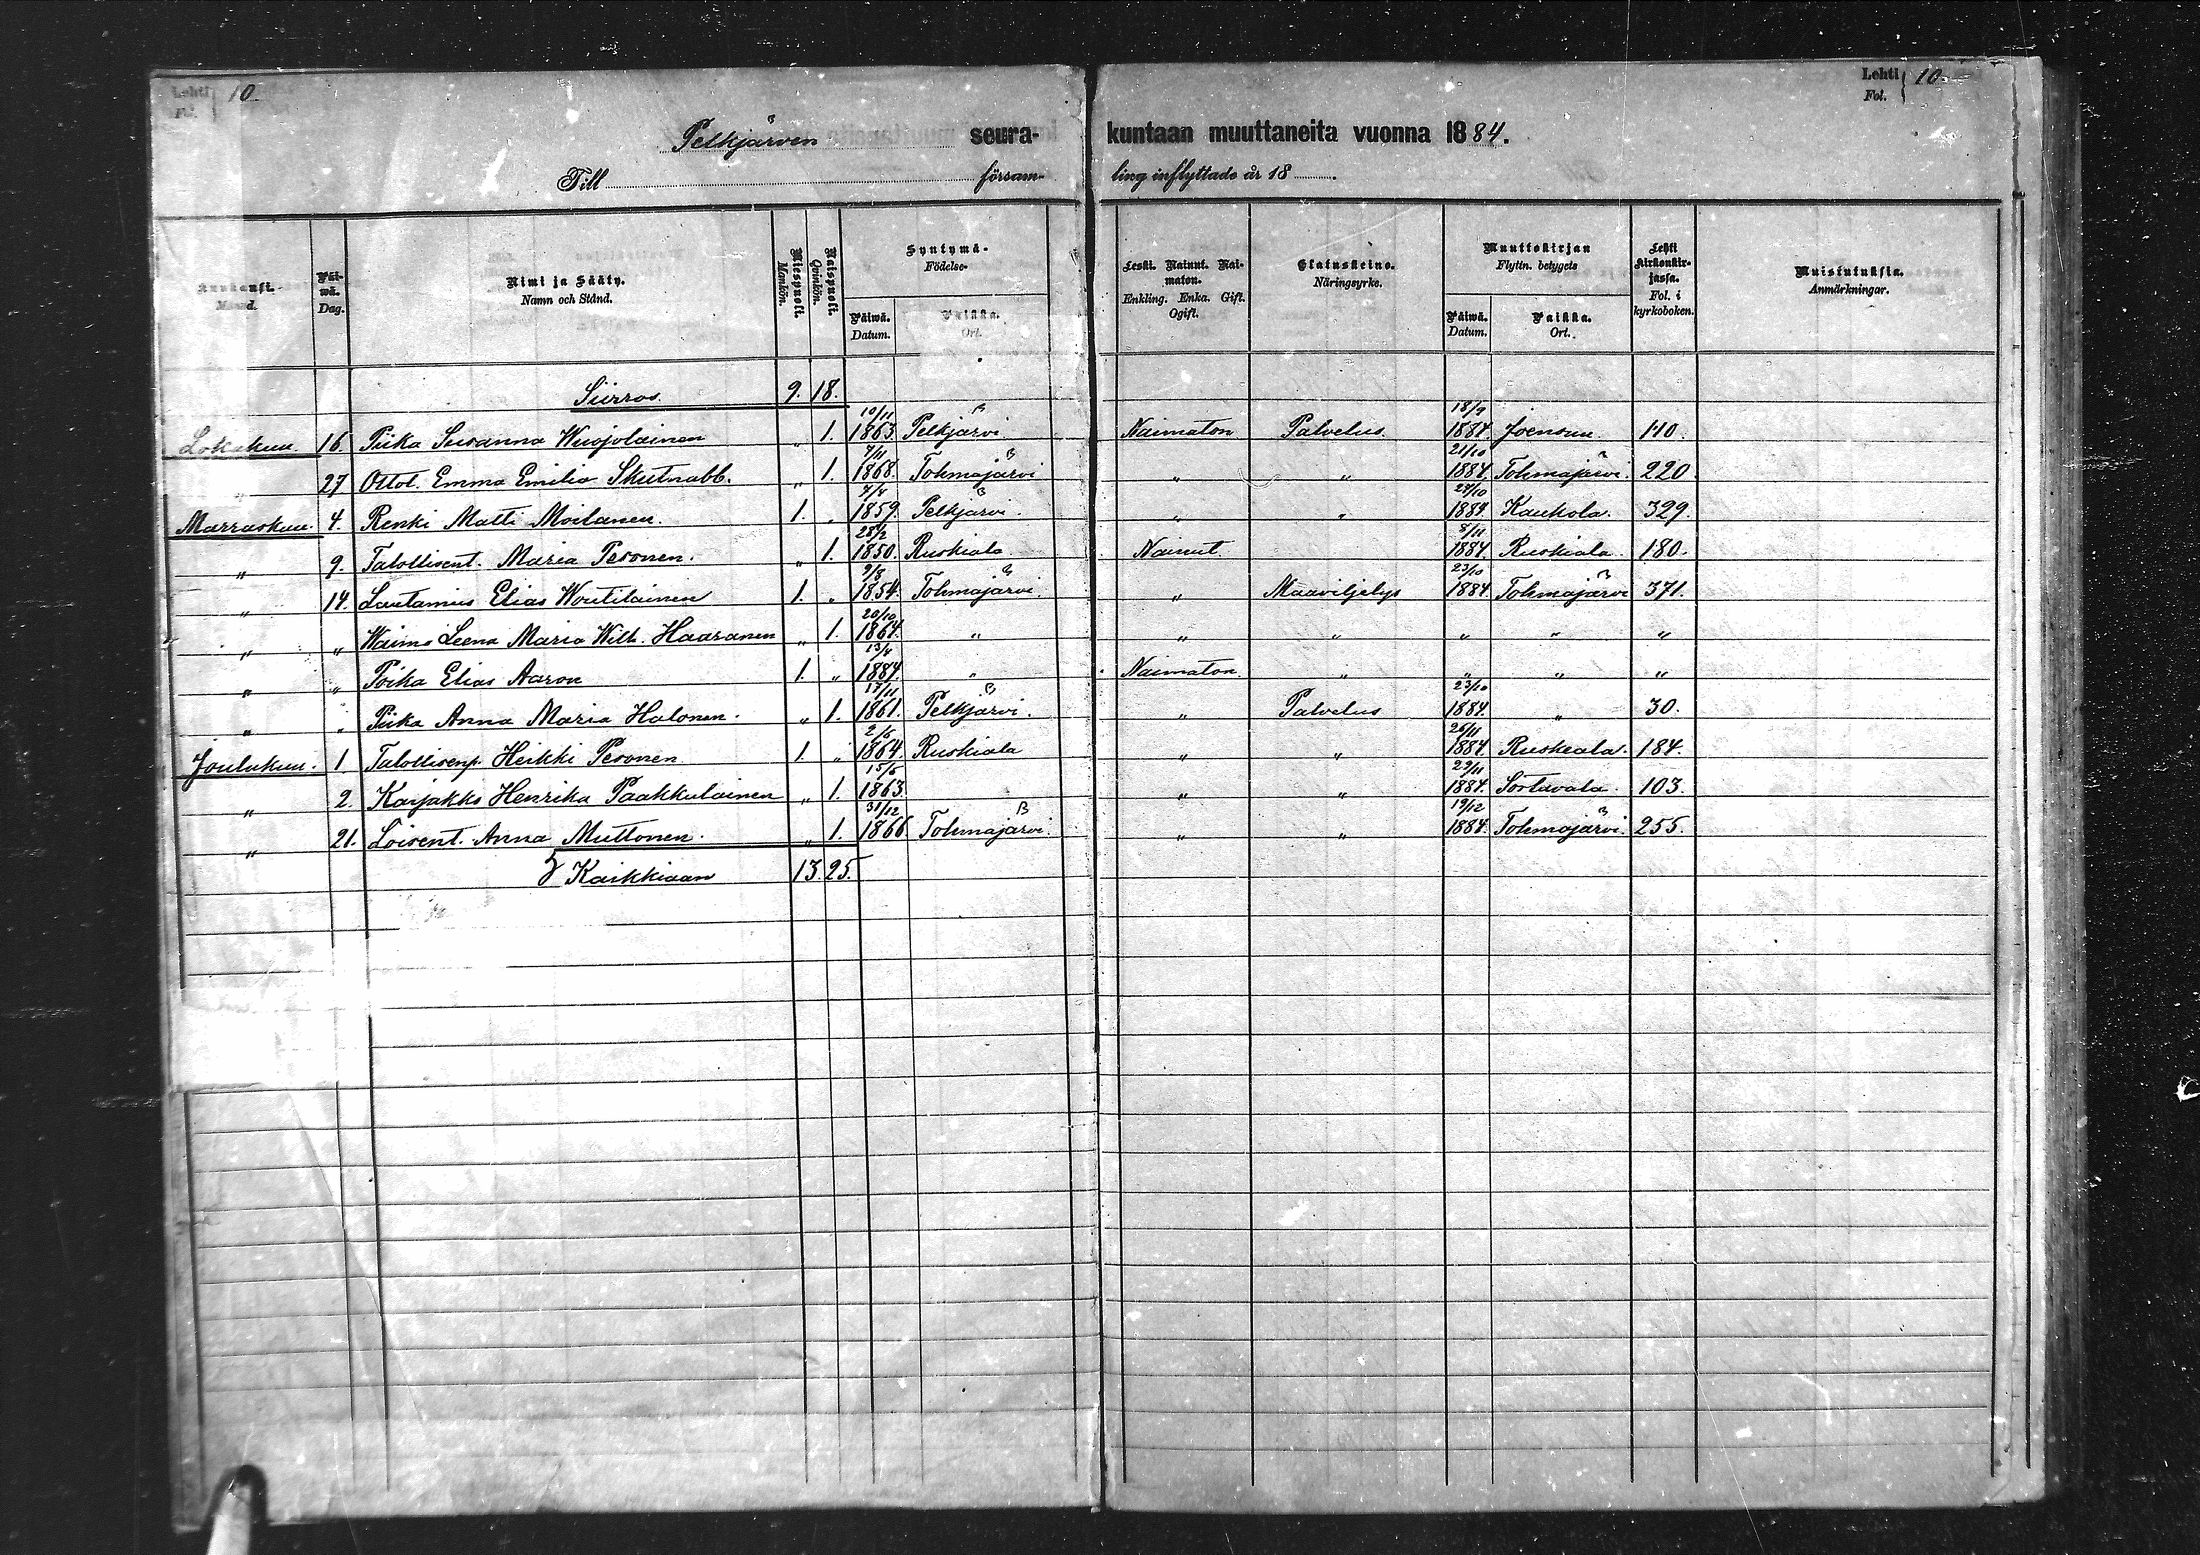 Lehti 10.
Fol.
Lehti 10.
Fol.
Pelkjärven seurakuntaan muuttaneita vuonna 1884.
Till församling inflyttade år 18
Kuukausi. Månad.
Päiwä. Dag.
Nimi ja Sääty. Namn och Stånd.
Miespuoli. Mankön.
Naispuoli. Qvinkön.
Syntymä- Födelse-
Päiwä. Datum.
Paikka. Ort.
Leski. Nainut. Naimaton. Enkling. Enka. Gift. Ogift.
Elatuskeino. Näringsyrke.
Muuttokirjan Flyttn. betygets
Päiwä. Datum.
Paikka. Ort.
Lehti kirkonkirjassa. Fol. i kyrkoboken.
Muistutuksia. Anmärkningar.
Siirros 9. 18.
Lokakuu. 16. Piika Susanna Wuojolainen „ 1. 10/11 1863. Pelkjärvi Naimaton Palvelus. 18/9 1884. Joensuu. 110.
„ 27 Ottot. Emma Emilia Skutnabb. „ 1. 7/11 1868. Tohmajärvi „ „ 21/10 1884. Tohmajärvi. 220.
Marraskuu. 4. Renki Matti Moilanen. 1. „ 4/4 1859. Pelkjärvi. „ „ 24/10 1884. Kaukola. 329.
„ 9. Talollisent. Maria Pesonen. „ 1. 28/2 1850. Ruskiala. Nainut. 8/11 1884. Ruskiala. 180.
„ 14. Lautamies Elias Woutilainen 1. „ 9/8 1854. Tohmajärvi. „ Maaviljelys 23/10 1884. Tohmajärvi 371.
„ „ Waimo Leena Maria Wilh. Haaranen „ 1. 20/10 1864. „ „ „ „ „ „
„ „ Poika Elias Aaron 1. „ 13/4 1884. „ Naimaton. „ „ „ „
„ „ Piika Anna Maria Halonen. „ 1. 17/11 1861. Pelkjärvi. „ Palvelus 23/10 1884. „ 30.
Joulukuu. 1. Talollisenp. Heikki Pesonen 1. „ 2/5 1864. Ruskiala „ „ 26/11 1884. Ruskeala. 184.
„ 2. Karjakko Henrika Paakkulainen „ 1. 15/5 1863. „ „ 29/11 1884. Sortavala. 103.
„ 21. Loisent. Anna Muttonen. „ 1. 31/12 1866. Tohmajärvi. „ „ 19/12 1884. Tohmajärvi. 255.
Kaikkiaan 13. 25.